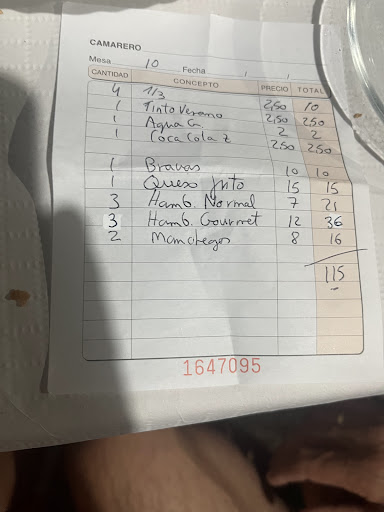 CAMARERO
Mesa 10 Fecha / /
CANTIDAD CONCEPTO PRECIO TOTAL
4 1/3 2,50 10
1 Tinto Verano 2,50 2,50
1 Agua G 2 2
1 Coca Cola Z 2,50 2,50
1 Bravas 10 10
1 Queso 15 15
3 Hamb. Normal 7 21
3 Hamb. Gourmet 12 36
2 Manchegos 8 16
115
1647095